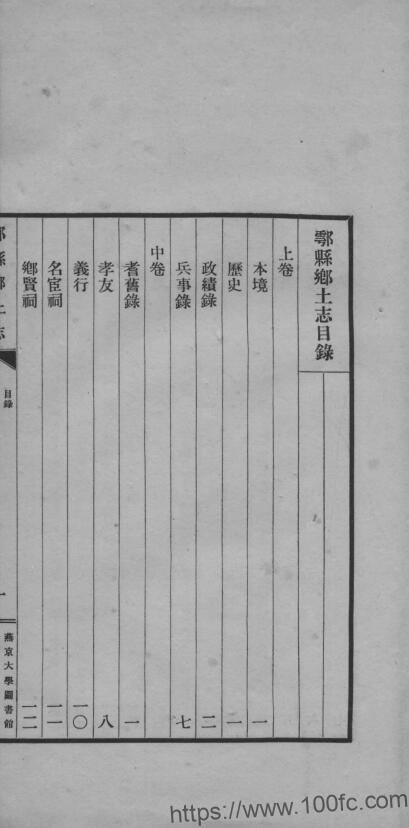 鄠縣鄉土志目錄
上卷
本境 一
歷史 一
政績錄 二
兵事錄 七
中卷
耆舊錄 一
孝友 八
義行 一〇
名宦祠 一一
鄉賢祠 一二
鄠縣鄉土志
目錄
一
燕京大學圖書館
https://www.100fc.com